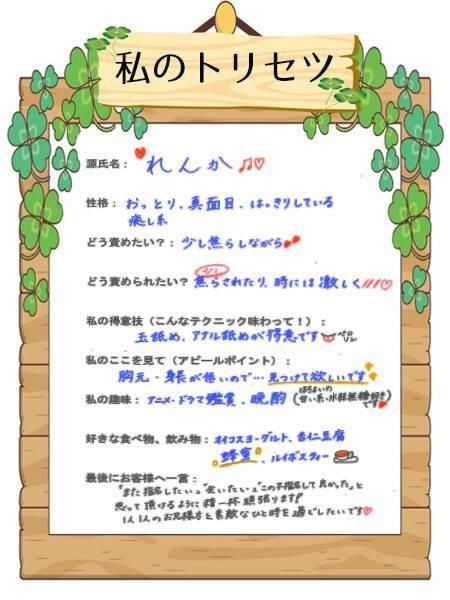 私のトリセツ
源氏名： れんか♫♡
性格： おっとり、真面目、はっきりしている
癒し系
どう責めたい？： 少し焦らしながら
少し
どう責められたい？ 焦らされたり、時には激しく///♡
私の得意技（こんなテクニック味わって！）：
玉舐め、アナル舐めが得意です ペロリン
私のここを見て（アピールポイント）：
胸元・身長が低いので…見つけて欲しいです
私の趣味： アニメ・ドラマ鑑賞、晩酌 (ほろよいの
甘い系・氷結無糖好き
です)
好きな食べ物、飲み物： オイコスヨーグルト、杏仁豆腐
蜂蜜、ルイボスティー
最後にお客様へ一言：
「また指名したい」「会いたい」「この子指名して良かった」と
思って頂けるように精一杯頑張ります!
1人1人のお兄様方と素敵なひと時を過ごしたいです♡